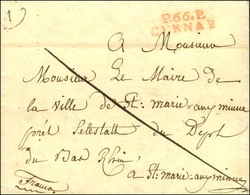 P.66.P.
CERNAY
A Monsieur
Monsieur Le Maire de
la ville de St: marie-aux minne
prét Selestatt du Dept
du Bas Rhin
a St: marie-aux minne
franco